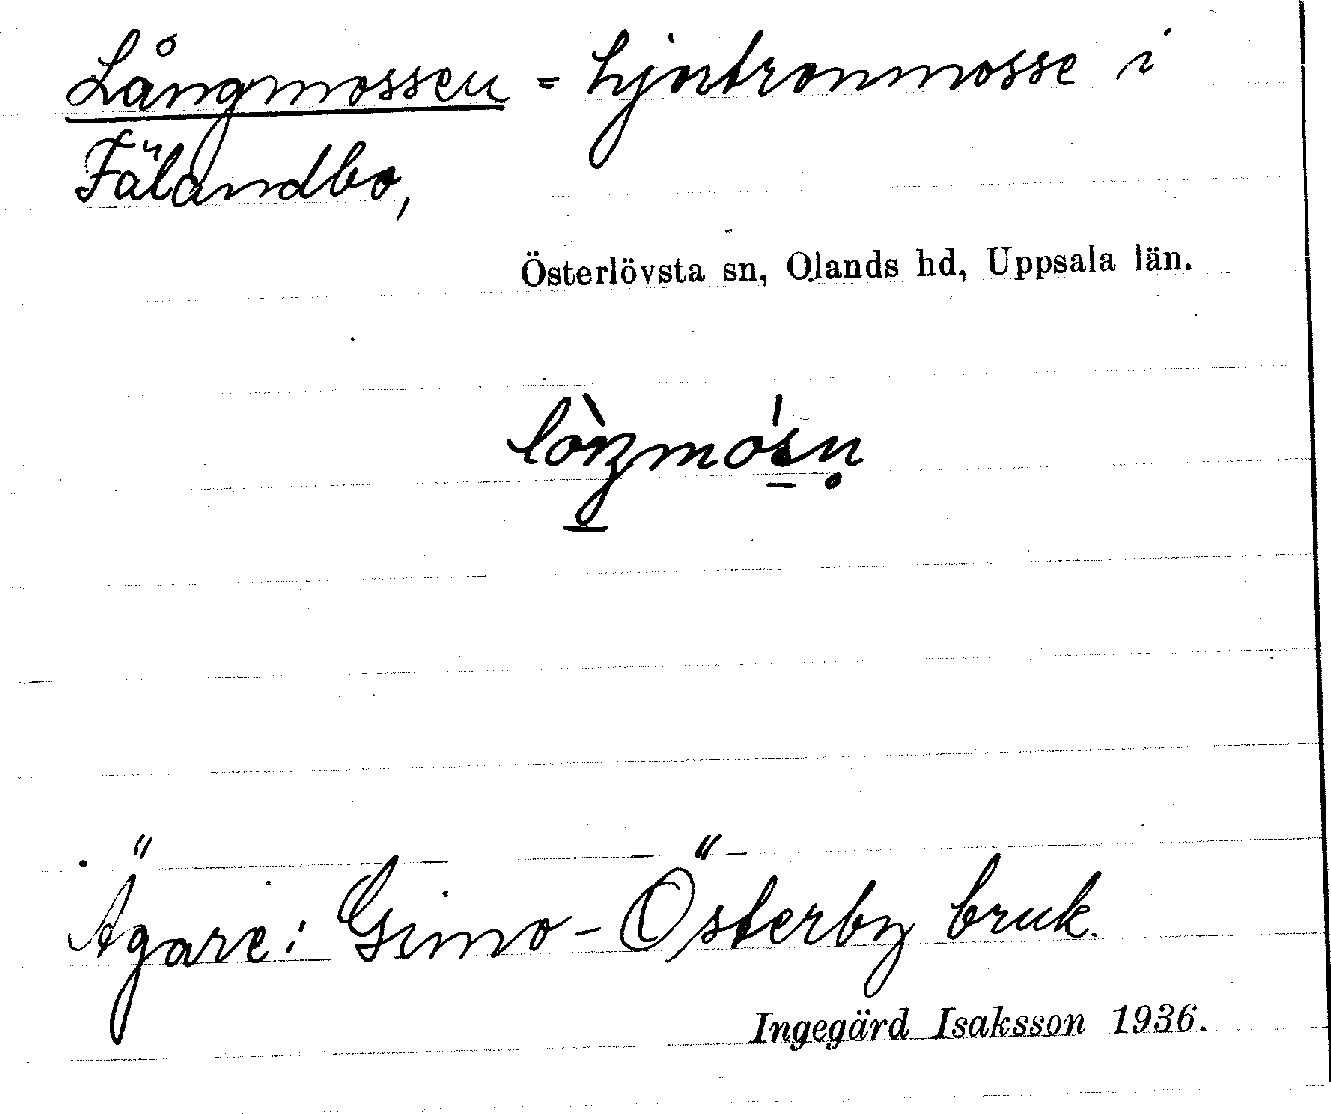 Långmossen = hjortronmosse i
Fälandbo,
Österlövsta sn, Olands hd, Uppsala län.
Ägare: Gimo-Österby bruk.
Ingegärd Isaksson 1936.